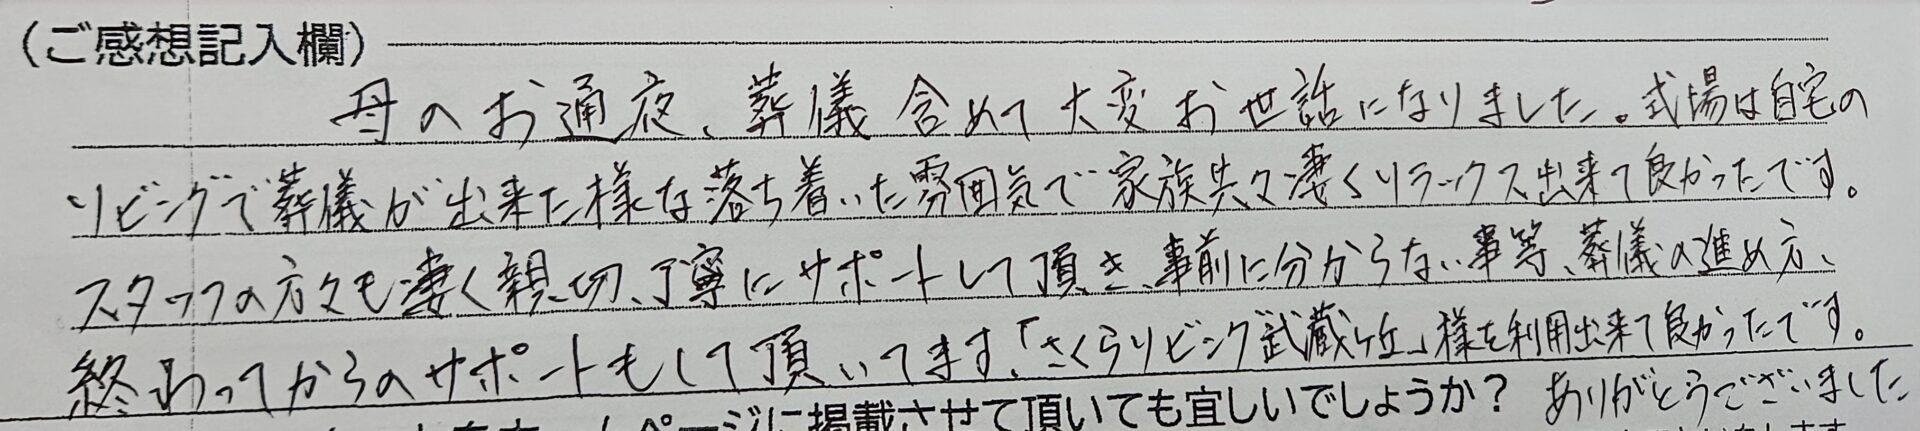 (ご感想記入欄)
母のお通夜、葬儀含めて大変お世話になりました。式場は自宅の
リビングで葬儀が出来た様な落ち着いた雰囲気で家族共々凄くリラックス出来て良かったです。
スタッフの方々も凄く親切、丁寧にサポートして頂き、事前に分からない事等、葬儀の進め方、
終わってからのサポートもして頂いてます。「さくらリビング武蔵ヶ丘」様を利用出来て良かったです。
ページに掲載させて頂いても宜しいでしょうか? ありがとうございました